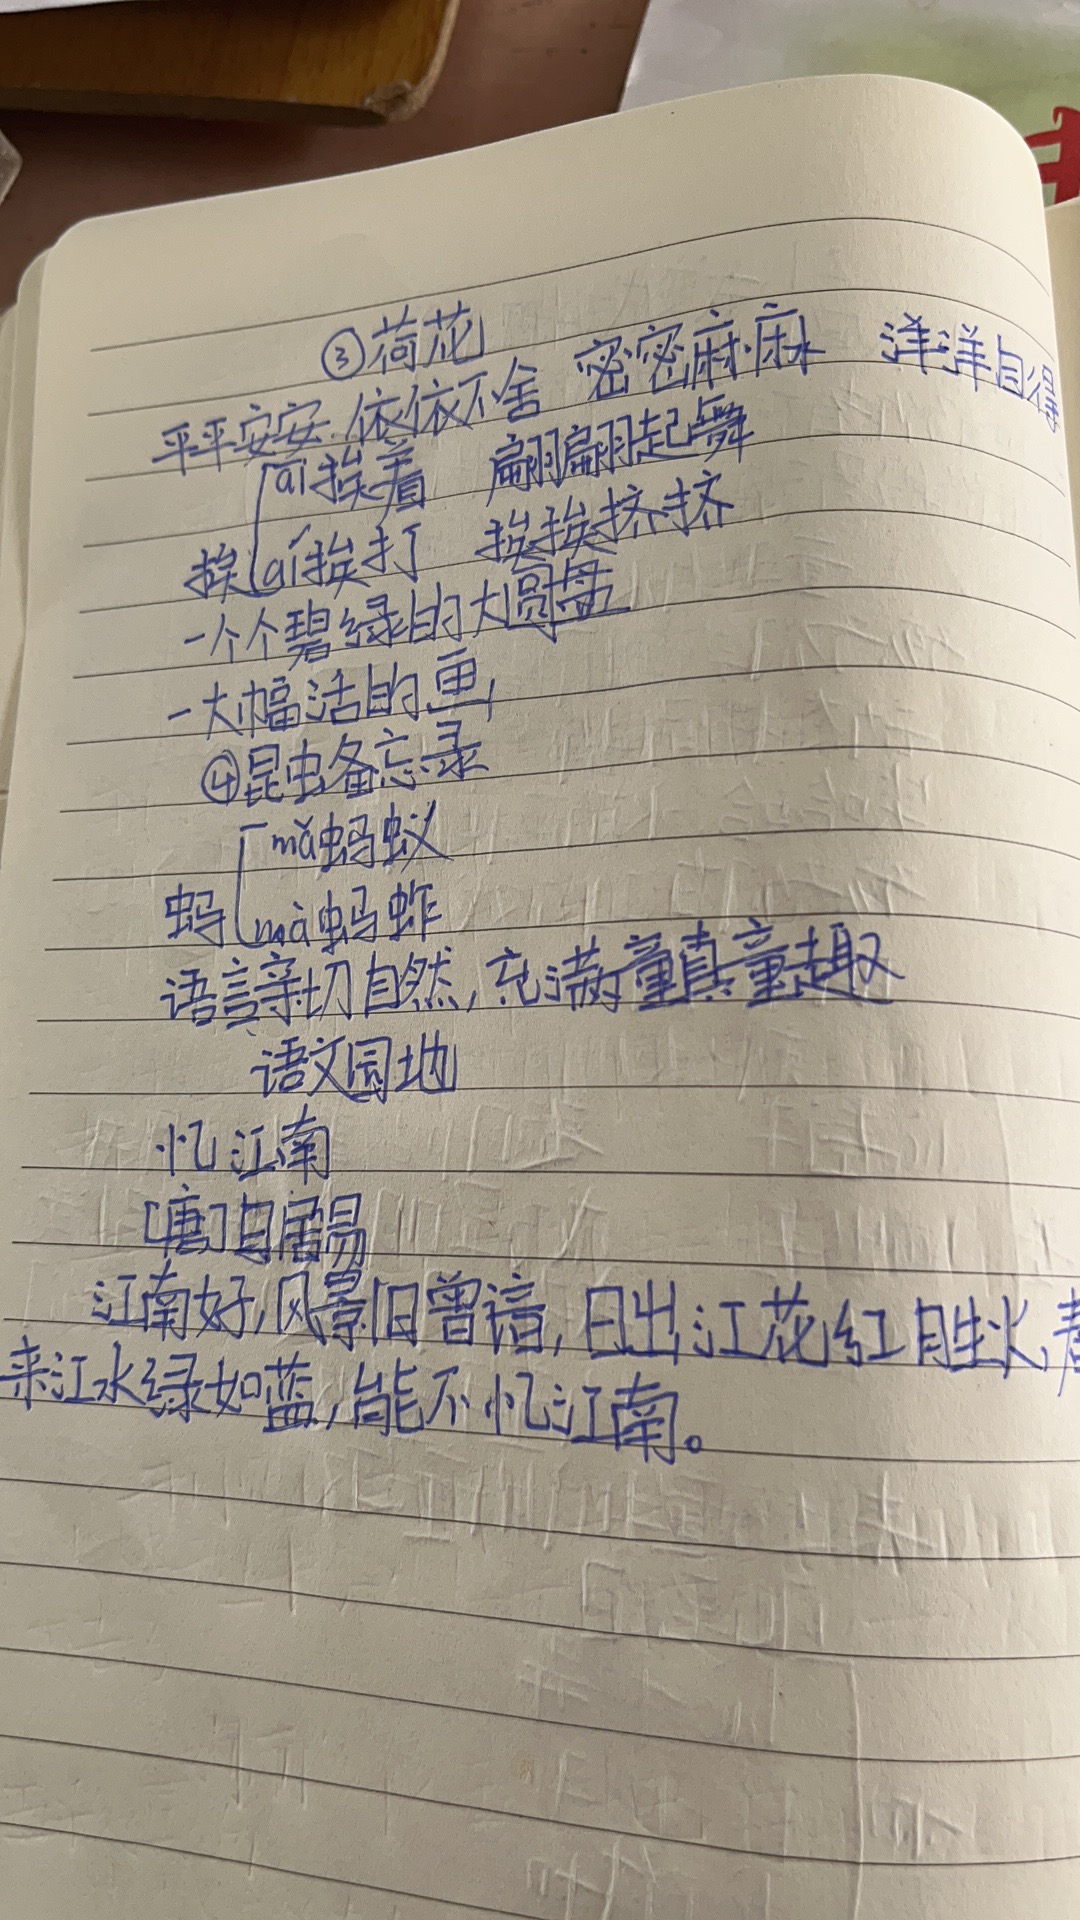 ③荷花
平平安安 依依不舍 密密麻麻 洋洋自得
āi挨着 翩翩起舞
挨 ái挨打 挨挨挤挤
一个个碧绿的大圆盘
一大幅活的画
④昆虫备忘录
mǎ蚂蚁
蚂 mà蚂蚱
语言亲切自然,充满童真童趣
语文园地
忆江南
[唐]白居易
江南好,风景旧曾谙,日出江花红胜火,春
来江水绿如蓝,能不忆江南。